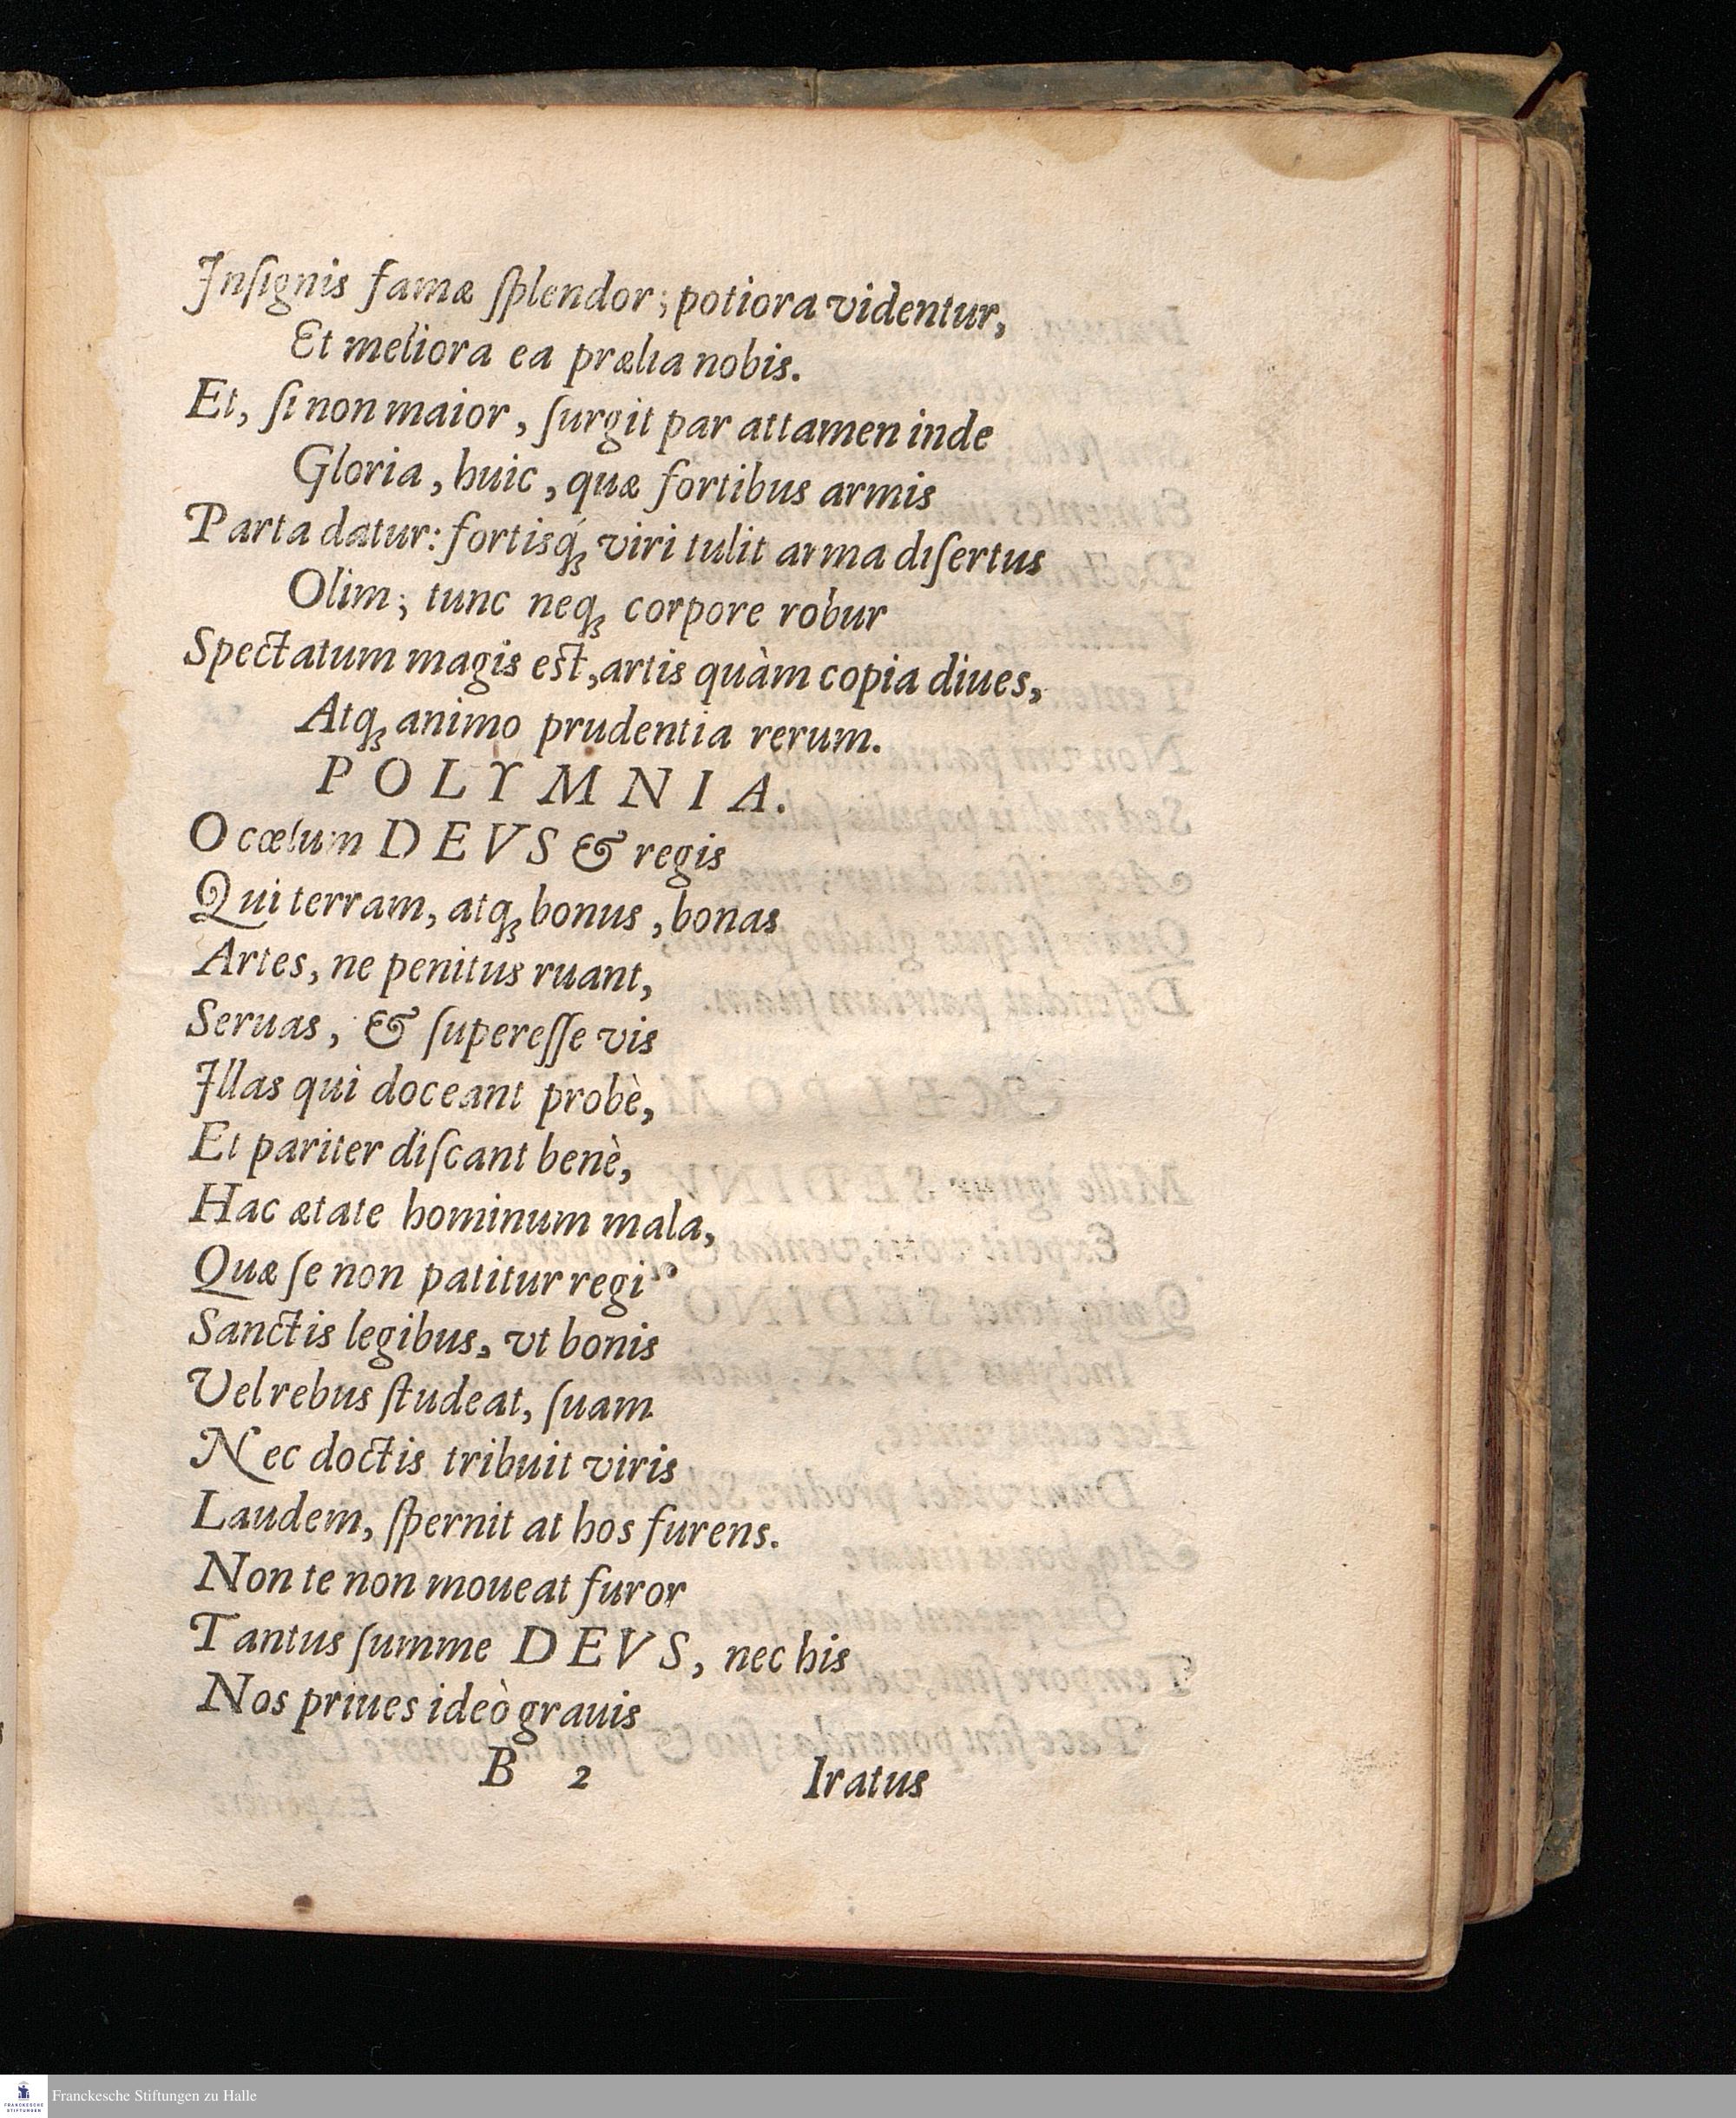 Inſignis famæ ſplendor; potiora videntur,
Et meliora ea prælia nobis.
Et, ſi non maior, ſurgit par attamen inde
Gloria, huic, quæ fortibus armis
Parta datur: fortisq́; viri tulit arma diſertus
Olim; tunc neq; corpore robur
Spectatum magis eſt, artis quàm copia diues,
Atq; animo prudentia rerum.
POLYMNIA.
O cœlum DEVS & regis
Qui terram, atq; bonus, bonas
Artes, ne penitus ruant,
Seruas, & ſupereſſe vis
Illas qui doceant probè,
Et pariter diſcant benè,
Hac ætate hominum mala,
Quæ ſe non patitur regi
Sanctis legibus, vt bonis
Vel rebus ſtudeat, ſuam
Nec doctis tribuit viris
Laudem, ſpernit at hos furens.
Non te non moueat furor
Tantus ſumme DEVS, nec his
Nos priues ideò grauis
B 2 Iratus
Franckesche Stiftungen zu Halle
FRANCKESCHE
STIFTUNGEN